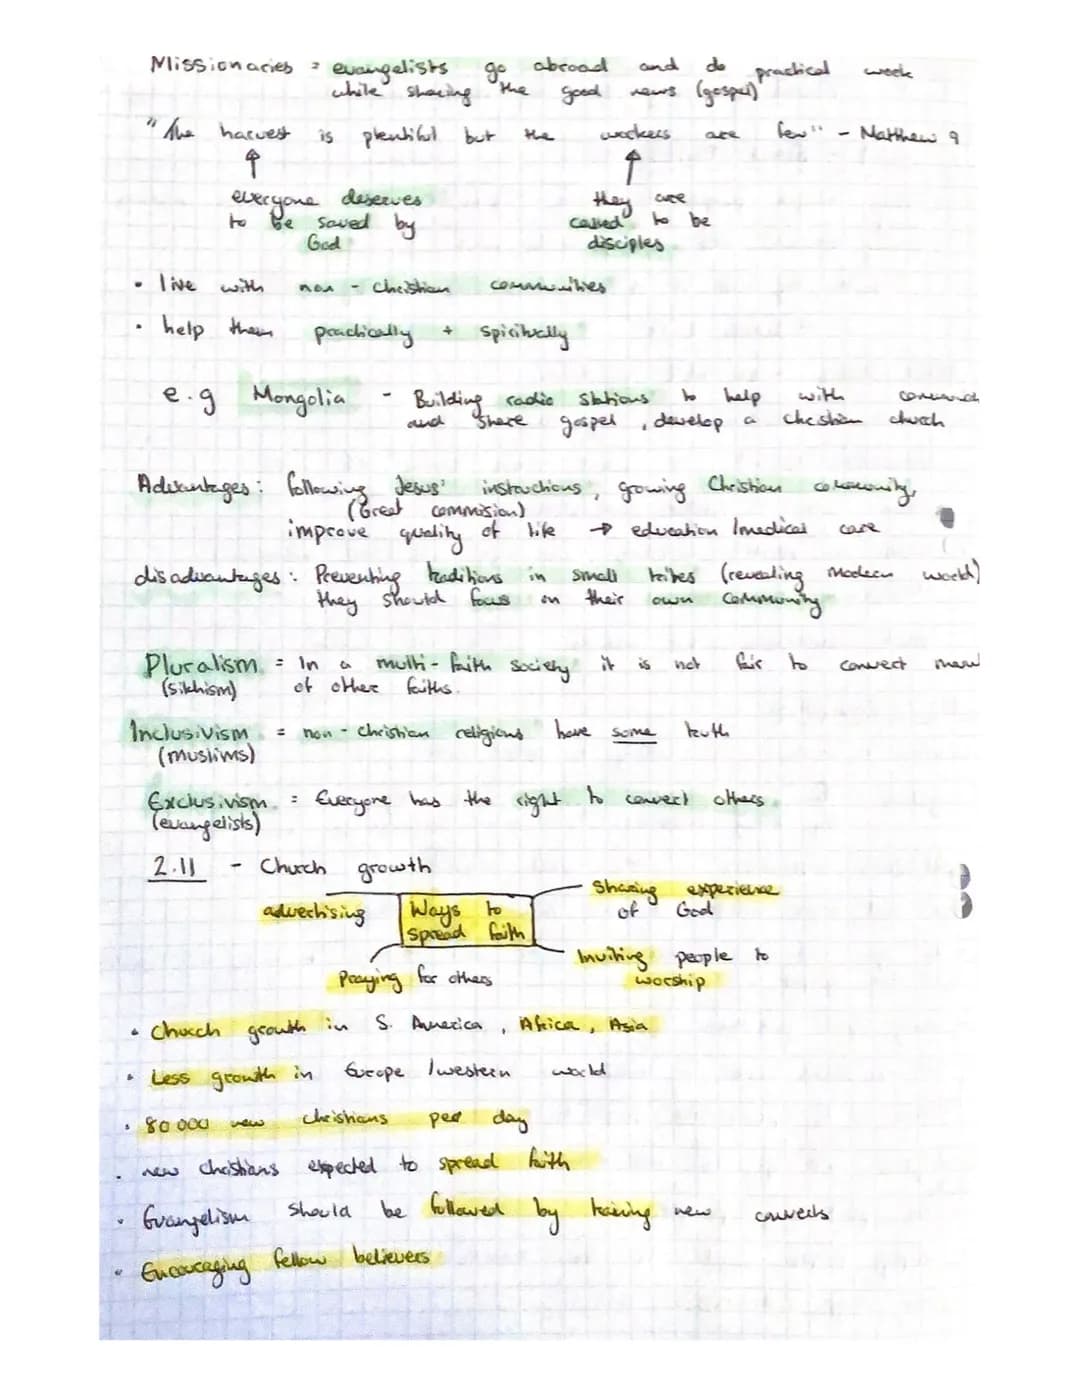 Missionaries = evangelists go abroad and do practical work
while sharing the good news (gospel)
"The harvest is plentiful but the workers are few" - Matthew 9
↑ ↑
everyone deserves they are
to be saved by called to be
God disciples
• live with non - Christian communities
• help them practically + spiritually
e.g Mongolia - Building radio stations to help with
and share gospel, develop a christian church
Advantages: following Jesus' instructions, growing Christian community,
(Great commision)
improve quality of life → education /medical care
disadvantages: Preventing traditions in small tribes (revealing modern world)
they should focus on their own community
Pluralism = In a multi-faith society it is not fair to convert
(sikhism) of other faiths.
Inclusivism = non - christian religions have some truth
(muslims)
Exclusivism = Everyone has the right to convert others
(evangelists)
2.11 - Church growth
advertising Ways to Sharing experience
spread faith of God
Praying for others Inviting people to
worship
• Church growth in S. America, Africa, Asia
• Less growth in Europe /western world
• 80 000 new christians per day
• new christians expected to spread faith
• Evangelism should be followed by training new converts
• Encouraging fellow believers